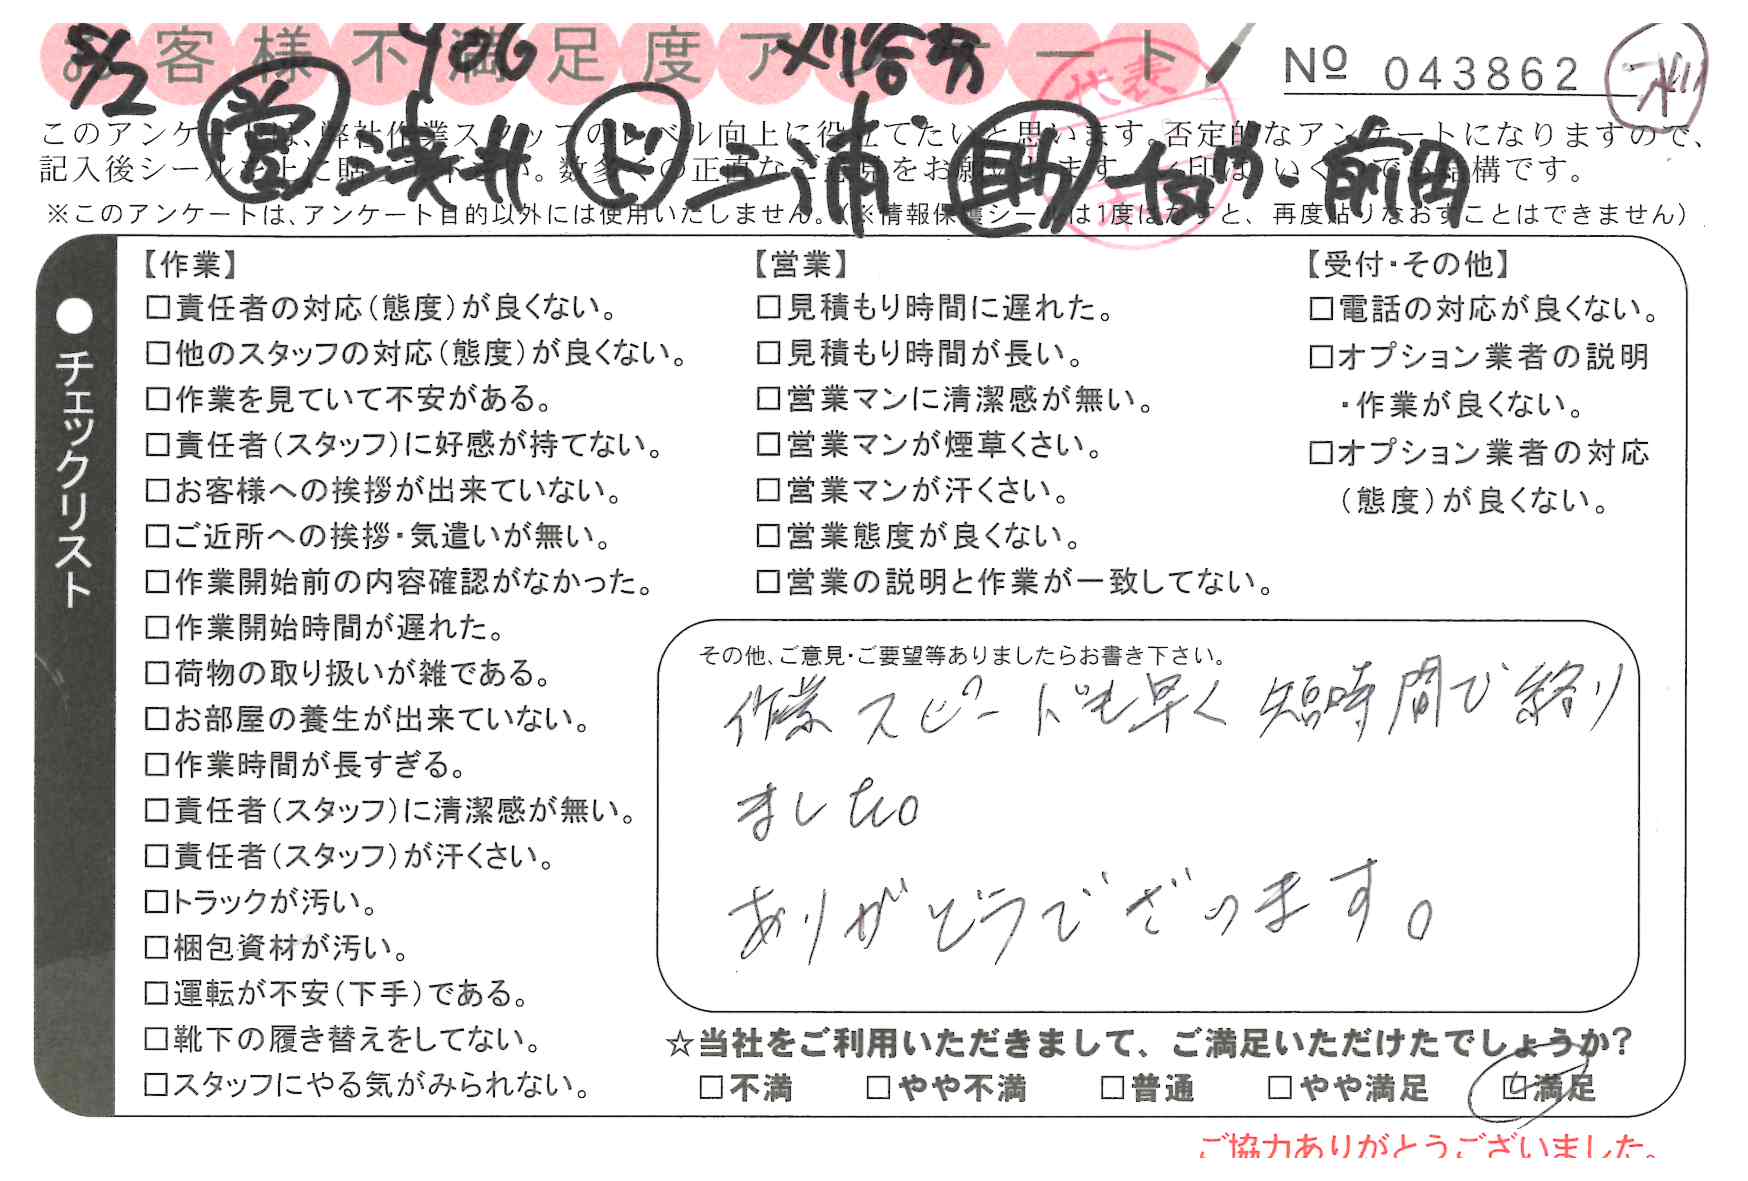 お客様不満足度アンケート
5/2
刈谷
Nº 043862
営 浅井 ド 三浦 助 前田
このアンケートは、弊社作業スタッフのレベル向上に役立てたいと思います。否定的なアンケートになりますので、
記入後シールを上に貼って下さい。数多くの正直なご意見をお願いします。✓印はいくつでも結構です。
※このアンケートは、アンケート目的以外には使用いたしません。（※情報保護シールは1度はがすと、再度貼りなおすことはできません）
●チェックリスト
【作業】
□責任者の対応（態度）が良くない。
□他のスタッフの対応（態度）が良くない。
□作業を見ていて不安がある。
□責任者（スタッフ）に好感が持てない。
□お客様への挨拶が出来ていない。
□ご近所への挨拶・気遣いが無い。
□作業開始前の内容確認がなかった。
□作業開始時間が遅れた。
□荷物の取り扱いが雑である。
□お部屋の養生が出来ていない。
□作業時間が長すぎる。
□責任者（スタッフ）に清潔感が無い。
□責任者（スタッフ）が汗くさい。
□トラックが汚い。
□梱包資材が汚い。
□運転が不安（下手）である。
□靴下の履き替えをしてない。
□スタッフにやる気がみられない。
【営業】
□見積もり時間に遅れた。
□見積もり時間が長い。
□営業マンに清潔感が無い。
□営業マンが煙草くさい。
□営業マンが汗くさい。
□営業態度が良くない。
□営業の説明と作業が一致してない。
【受付・その他】
□電話の対応が良くない。
□オプション業者の説明
・作業が良くない。
□オプション業者の対応
（態度）が良くない。
その他、ご意見・ご要望等ありましたらお書き下さい。
作業スピードも早く短時間で終り
ました。
ありがとうございます。
☆当社をご利用いただきまして、ご満足いただけたでしょうか？
□不満 □やや不満 □普通 □やや満足 □満足
ご協力ありがとうございました。